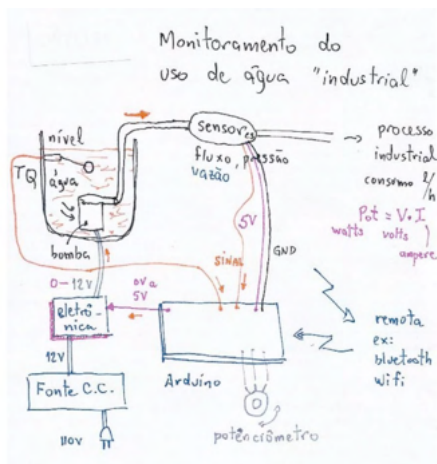 Monitoramento do
uso de água "industrial"
nível
TQ
água
bomba
sensores
fluxo, pressão
vazão
processo
industrial
consumo l/h
Pot = V • I
watts volts
ampere
5V
GND
SINAL
0-12V
0V a
5V
eletrô-
nica
12V
Fonte C.C.
110V
Arduino
potênciômetro
remota
ex:
bluetooth
wifi